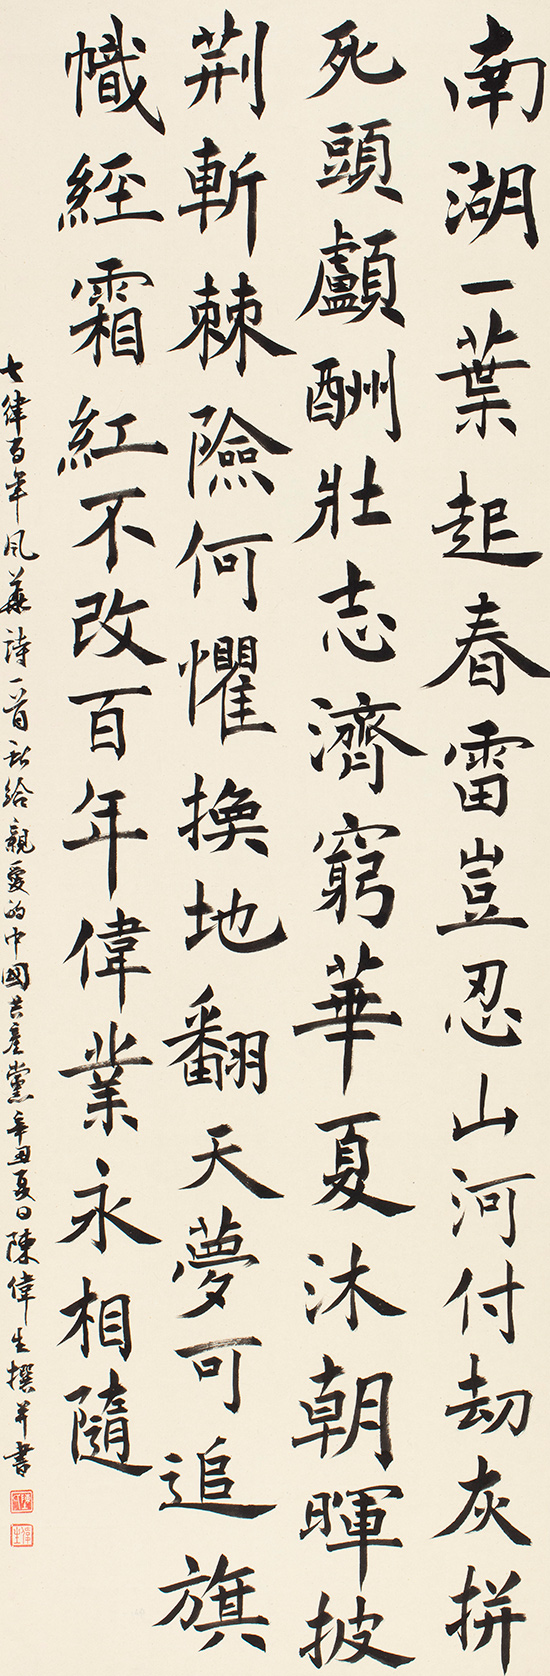 南湖一葉起春雷豈忍山河付劫灰拼
死頭顱酬壯志濟窮華夏沐朝暉披
荆斬棘險何懼換地翻天夢可追旗
幟經霜紅不改百年偉業永相隨
七律百年風華詩一首獻給親愛的中國共產黨辛丑夏日陳偉生撰并書